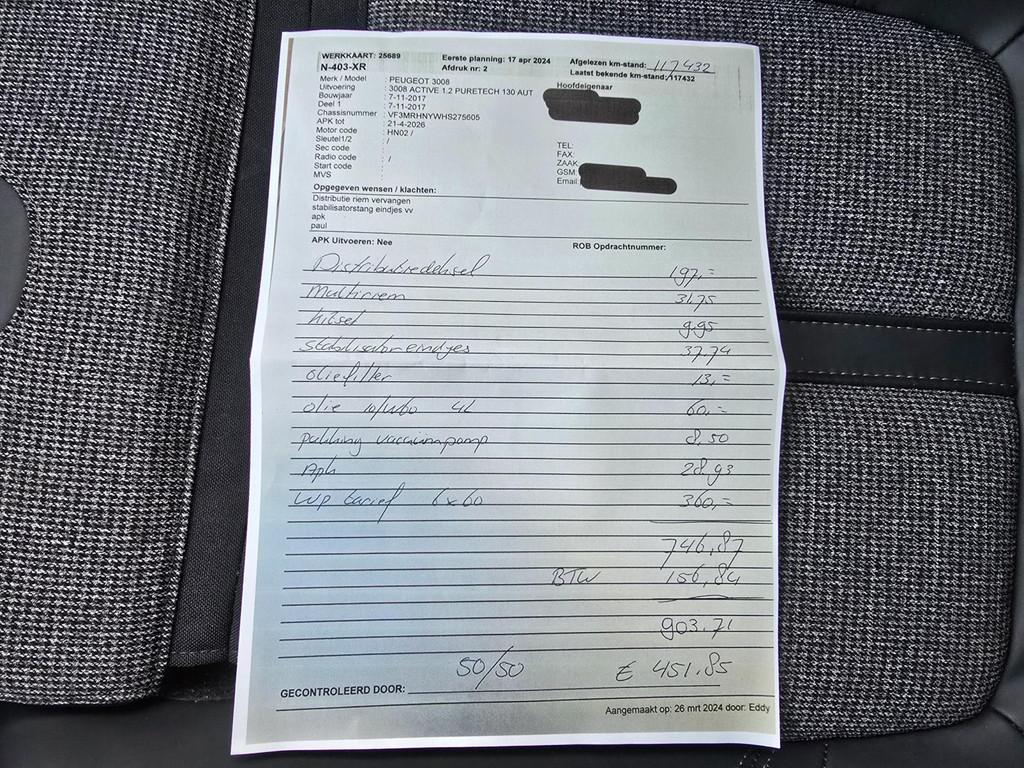 WERKKAART: 25689 Eerste planning: 17 apr 2024 Afgelezen km-stand: 117432
N-403-XR Afdruk nr: 2 Laatst bekende km-stand: 117432
Merk / Model : PEUGEOT 3008 Hoofdeigenaar
Uitvoering : 3008 ACTIVE 1.2 PURETECH 130 AUT
Bouwjaar : 7-11-2017
Deel 1 : 7-11-2017
Chassisnummer : VF3MRHNYWHS275605
APK tot : 21-4-2026
Motor code : HN02 /
Sleutel1/2 : / TEL:
Sec code : FAX:
Radio code : / ZAAK
Start code : GSM:
MVS : Email:
Opgegeven wensen / klachten:
Distributie riem vervangen
stabilisatorstang eindjes vv
apk
paul
APK Uitvoeren: Nee ROB Opdrachtnummer:
Distributiedeksel 197,=
Multiriem 31.75
kitset 9.95
Stabilisatoreindjes 37.74
oliefilter 13,=
olie 10/W60 4L 60,=
pakking vacuumpomp 8.50
Apk 28.93
WP tarief 6x60 360,=
746,87
BTW 156,84
903.71
50/50 € 451.85
GECONTROLEERD DOOR:
Aangemaakt op: 26 mrt 2024 door: Eddy